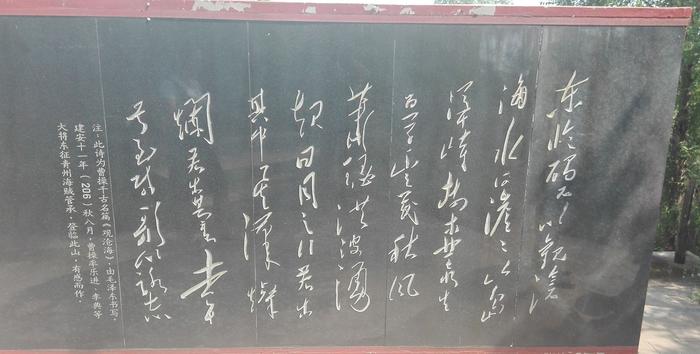 东临碣石以觀滄
海水何澹澹山島
竦峙樹木叢生
百草豐茂秋风
蕭瑟洪波涌
起日月之行若出
其中星漢燦
爛若出其里幸
甚至哉歌以詠志
注：此诗为曹操千古名篇《观沧海》，由毛泽东书写。
建安十一年（206）秋八月，曹操率乐进、李典等
大将东征青州海贼管承，登临此山，有感而作。